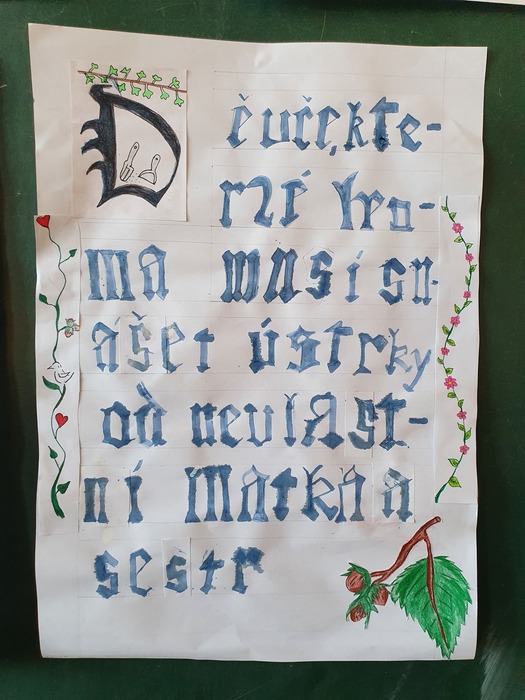 Děvče, kte-
ré do-
ma musí sn-
ášet ústrky
od nevlast-
ní matka a
sester